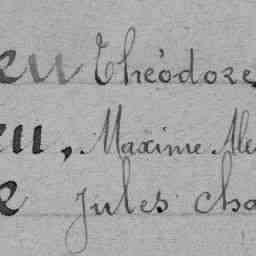 eu Théodore
eu, Maxime Ale
e Jules Cha